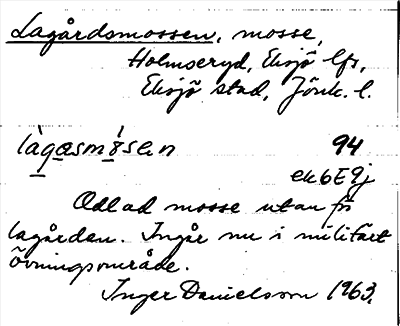 Lagårdsmossen, mosse,
Holmseryd, Eksjö lfs,
Eksjö stad, Jönk. l.
94
ek6E9j
Odlad mosse utan fs
lagården. Ingår nu i militärt
övningsområde.
Inger Danielsson 1963.